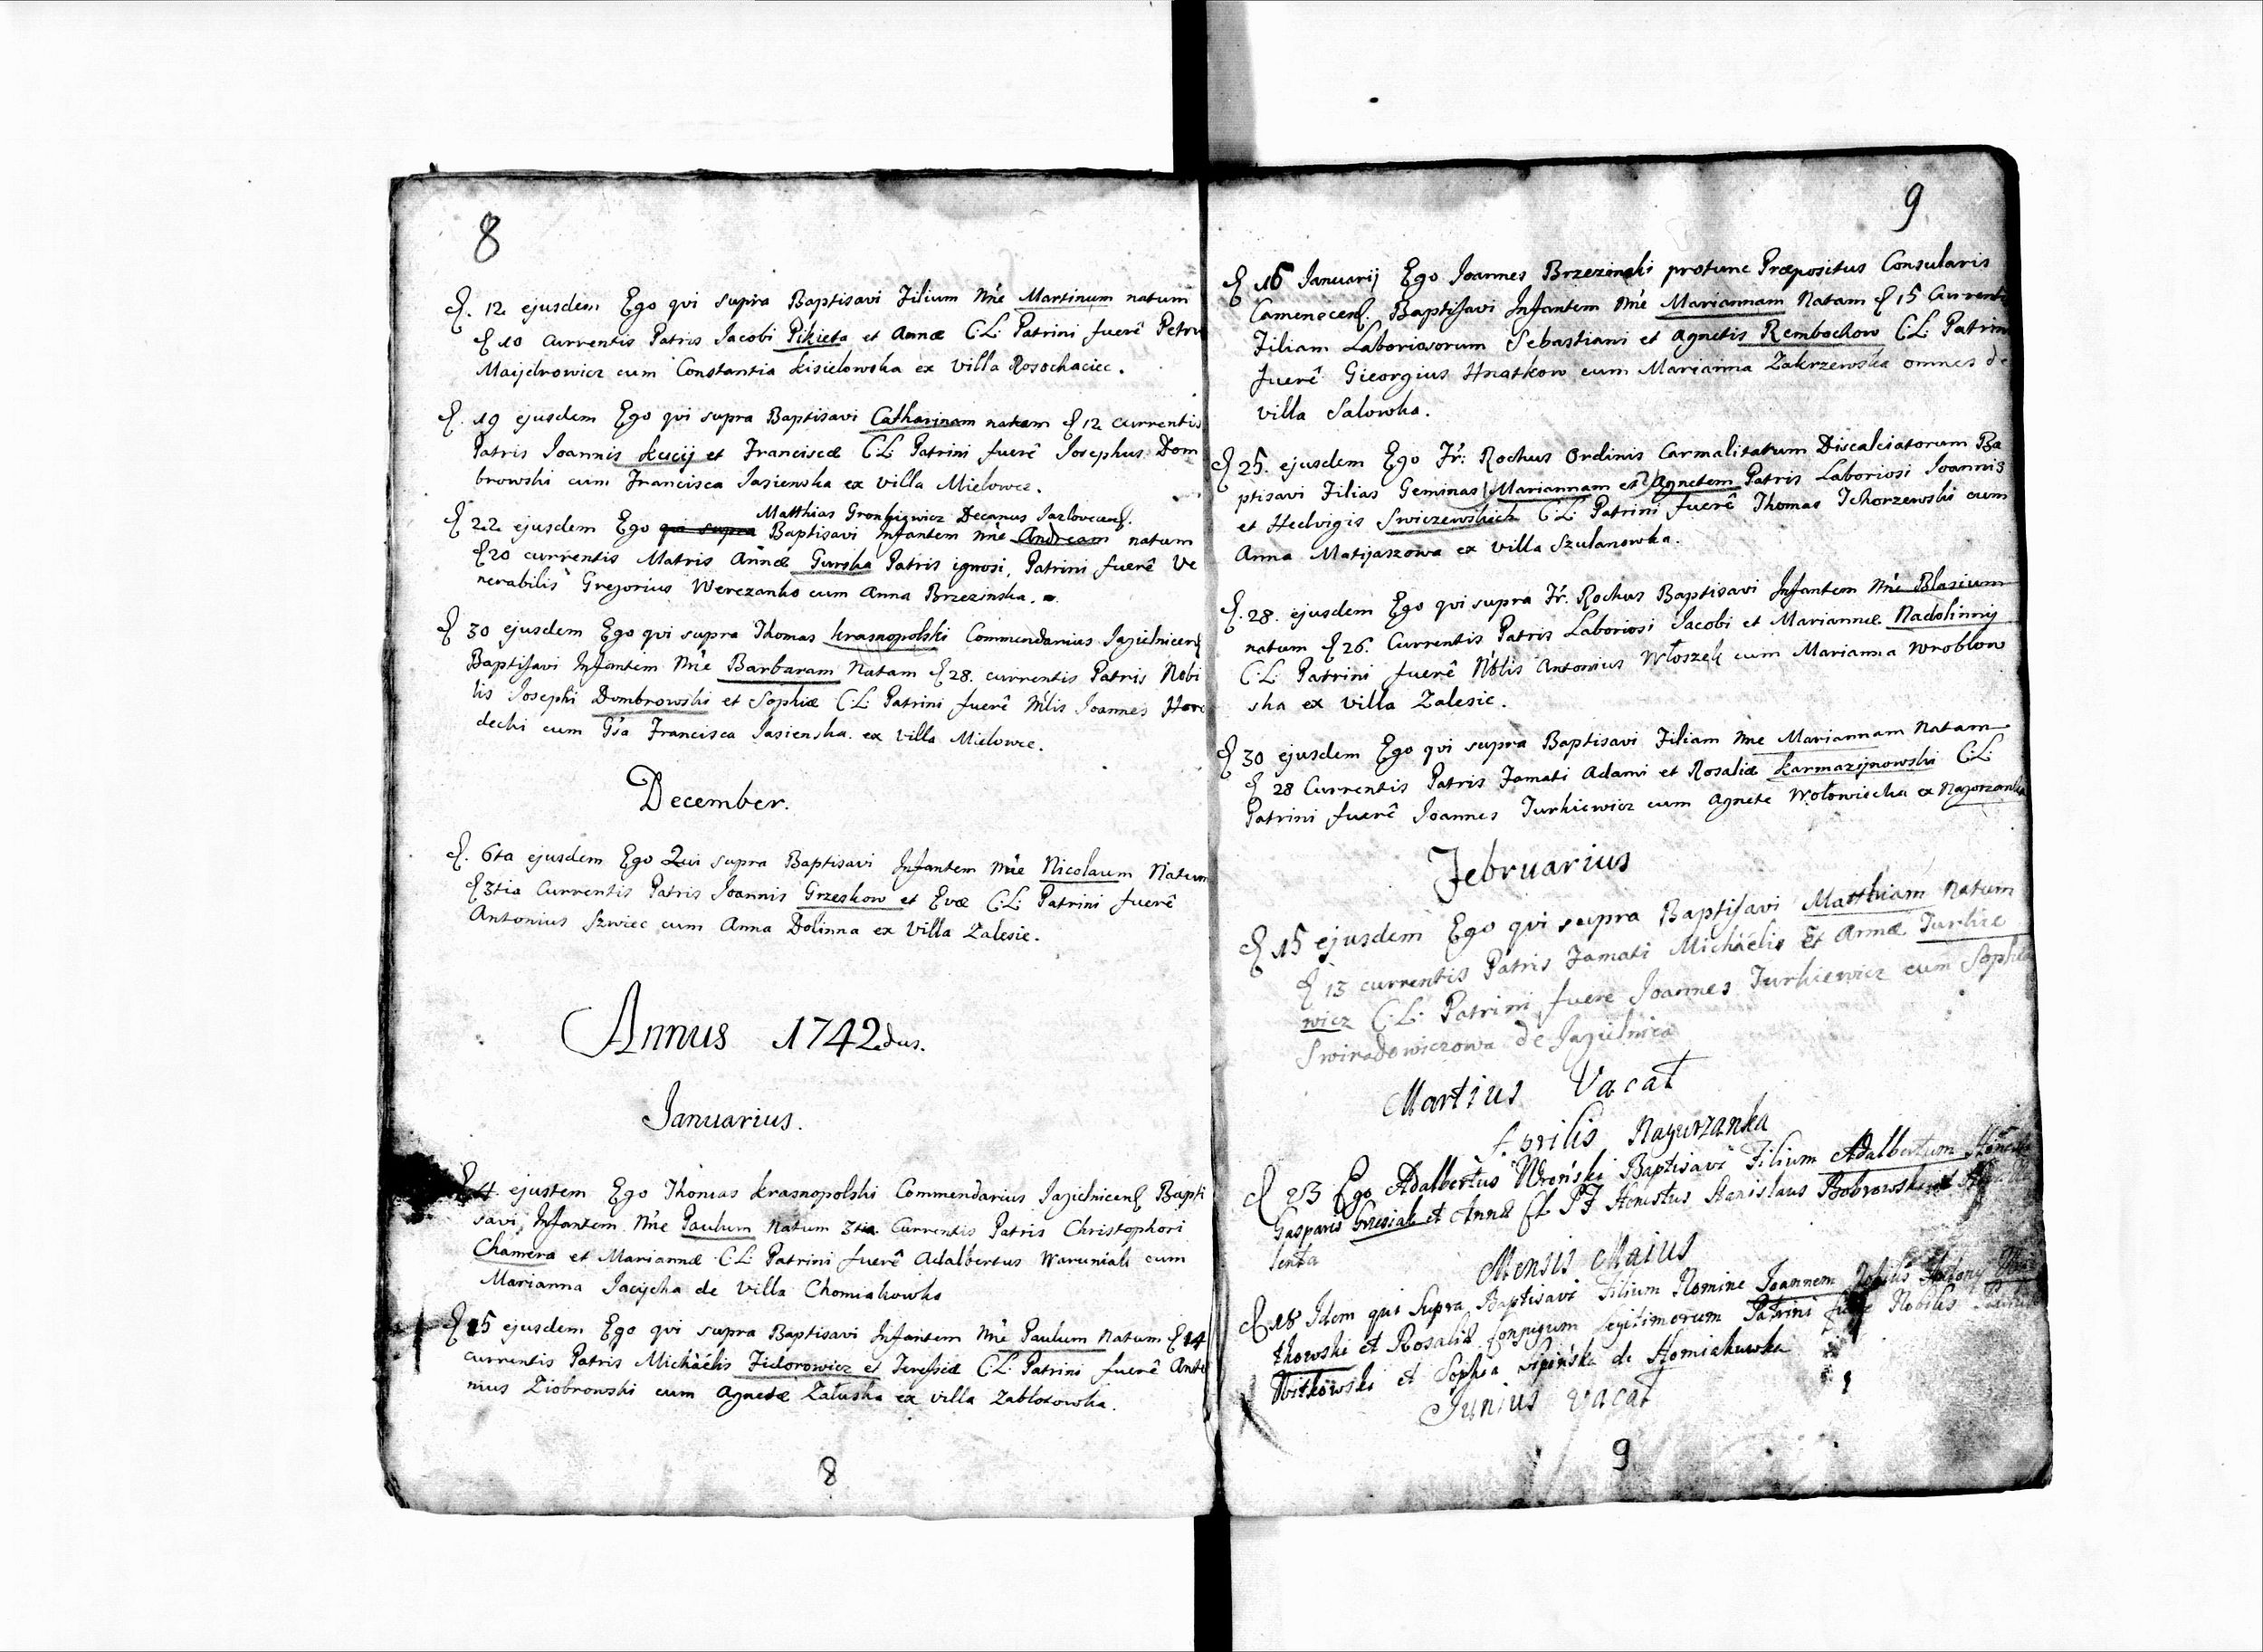 8
D. 12 ejusdem Ego qvi supra Baptisavi Filium Nn̄e Martinum natum
D 10 currentis Patris Jacobi Pikieta et Annæ C:L: Patrini fuerê Petru
Maydrowicz cum Constantia Kisielowska ex Villa Rosochaciec.
D. 19 ejusdem Ego qvi supra Baptisavi Catharinam natam D 12 currentis
Patris Joannis Kucij et Franciscæ C:L: Patrini fuerê Josephus Dom
browski cum Francisca Jasienska ex villa Mielowce.
Matthias Decanus Jazlovecen.
D 22 ejusdem Ego qui supra Baptisavi Infantem Nn̄e Andream natum
D 20 currentis Matris Annæ Gurska Patris ignosi, Patrini fuerê Ve
nerabilis Gregorius Werezanko cum Anna Brzezinska.
D 30 ejusdem Ego qvi supra Thomas Krasnopolski Commendarius Jagielnicen
Baptisavi Infantem Nn̄e Barbaram Natam D 28. currentis Patris Nobi
lis Josephi Dombrowski et Sophiæ C:L: Patrini fuerê Nb̄lis Joannes Horo
decki cum Gsa Francisca Jasienska ex Villa Mielowce.
December.
D. 6ta ejusdem Ego Qui supra Baptisavi Infantem Nn̄e Nicolaum Natum
D 3tia Currentis Patris Joannis Grzeskow et Evæ C:L: Patrini fuerê
Antonius Szwiec cum Anna Dolinna ex Villa Zalesie.
Annus 1742dus.
Januarius.
D 4. ejustem Ego Thomas Krasnopolski Commendarius Jagielnicen Bapti
savi Infantem Nn̄e Paulum natum 3tia Currentis Patris Christophori
Chamera et Mariannæ C:L: Patrini fuerê Adalbertus Waruniak cum
Marianna Jacycha de Villa Chomiakowka
D 15 ejusdem Ego qvi supra Baptisavi Infantem Nn̄e Paulum natum D 14
currentis Patris Michäelis Fidorowicz et Teressiæ C:L: Patrini fuerê Anto
nius Ziobrowski cum Agnetæ Załuska ex villa Zabłotowka.
8
9
D 16 Januarij Ego Joannes Brzezinski protunc Præpositus Consularis
Camenecen. Baptisavi Infantem Nn̄e Mariannam Natam D 15 Currenti
Filiam Laboriosorum Sebastiani et Agnetis Rembochow C:L: Patrin
fuerê Gieorgius Hnatkow cum Marianna Zakrzewska omnes de
villa Salowka.
D 25. ejusdem Ego Fr: Rochus Ordinis Carmalitatum Discalciatorum Ba
ptisavi Filias Geminas Mariannam et Agnetem Patris Laboriosi Joannis
et Hedvigis Swiczewskich C:L: Patrini fuerê Thomas Tchorzewski cum
Anna Matijaszowa ex villa Szulanowka.
D. 28. ejusdem Ego qvi supra Fr. Rochus Baptisavi Infantem Nn̄e Blasium
natum D 26. Currentis Patris Laboriosi Jacobi et Mariannæ Nadolinny
C:L: Patrini fuerê Nb̄lis Antonius Włoszek cum Marianna Wroblow
ska ex villa Zalesie.
D 30 ejusdem Ego qvi supra Baptisavi Filiam Nn̄e Mariannam Natam
D 28 Currentis Patris Famati Adami et Rosaliæ Karmazynowski C:L:
Patrini fuerê Joannes Turkiewicz cum Agnete Wołowiecka ex Nagorzanka
Februarius
D 15 ejusdem Ego qvi supra Baptisavi Matthiam Natum
D 13 currentis Patris Famati Michäelis et Annæ Turkie
wicz C:L: Patrini fuere Joannes Turkiewicz cum Sophia
Swiradowiczowa de Jagielnica
Martius Vacat
Aprilis Nagurzanka
D 23 Ego Adalbertus Wroński Baptisavi Filium Adalbertum
Gasparis Grzesiak et Annæ CL PF Honestus Stanislaus Bobrowski et
Mensis Maius
D 18 Idem qui Supra Baptisavi Filium Nomine Joannem Nobilis Antony
tkowski et Rosaliæ Conjugum legitimorum Patrini fuere Nobilis
Witkowski et Sophia Lipińska de Homiakuwka
Junius Vacat
9